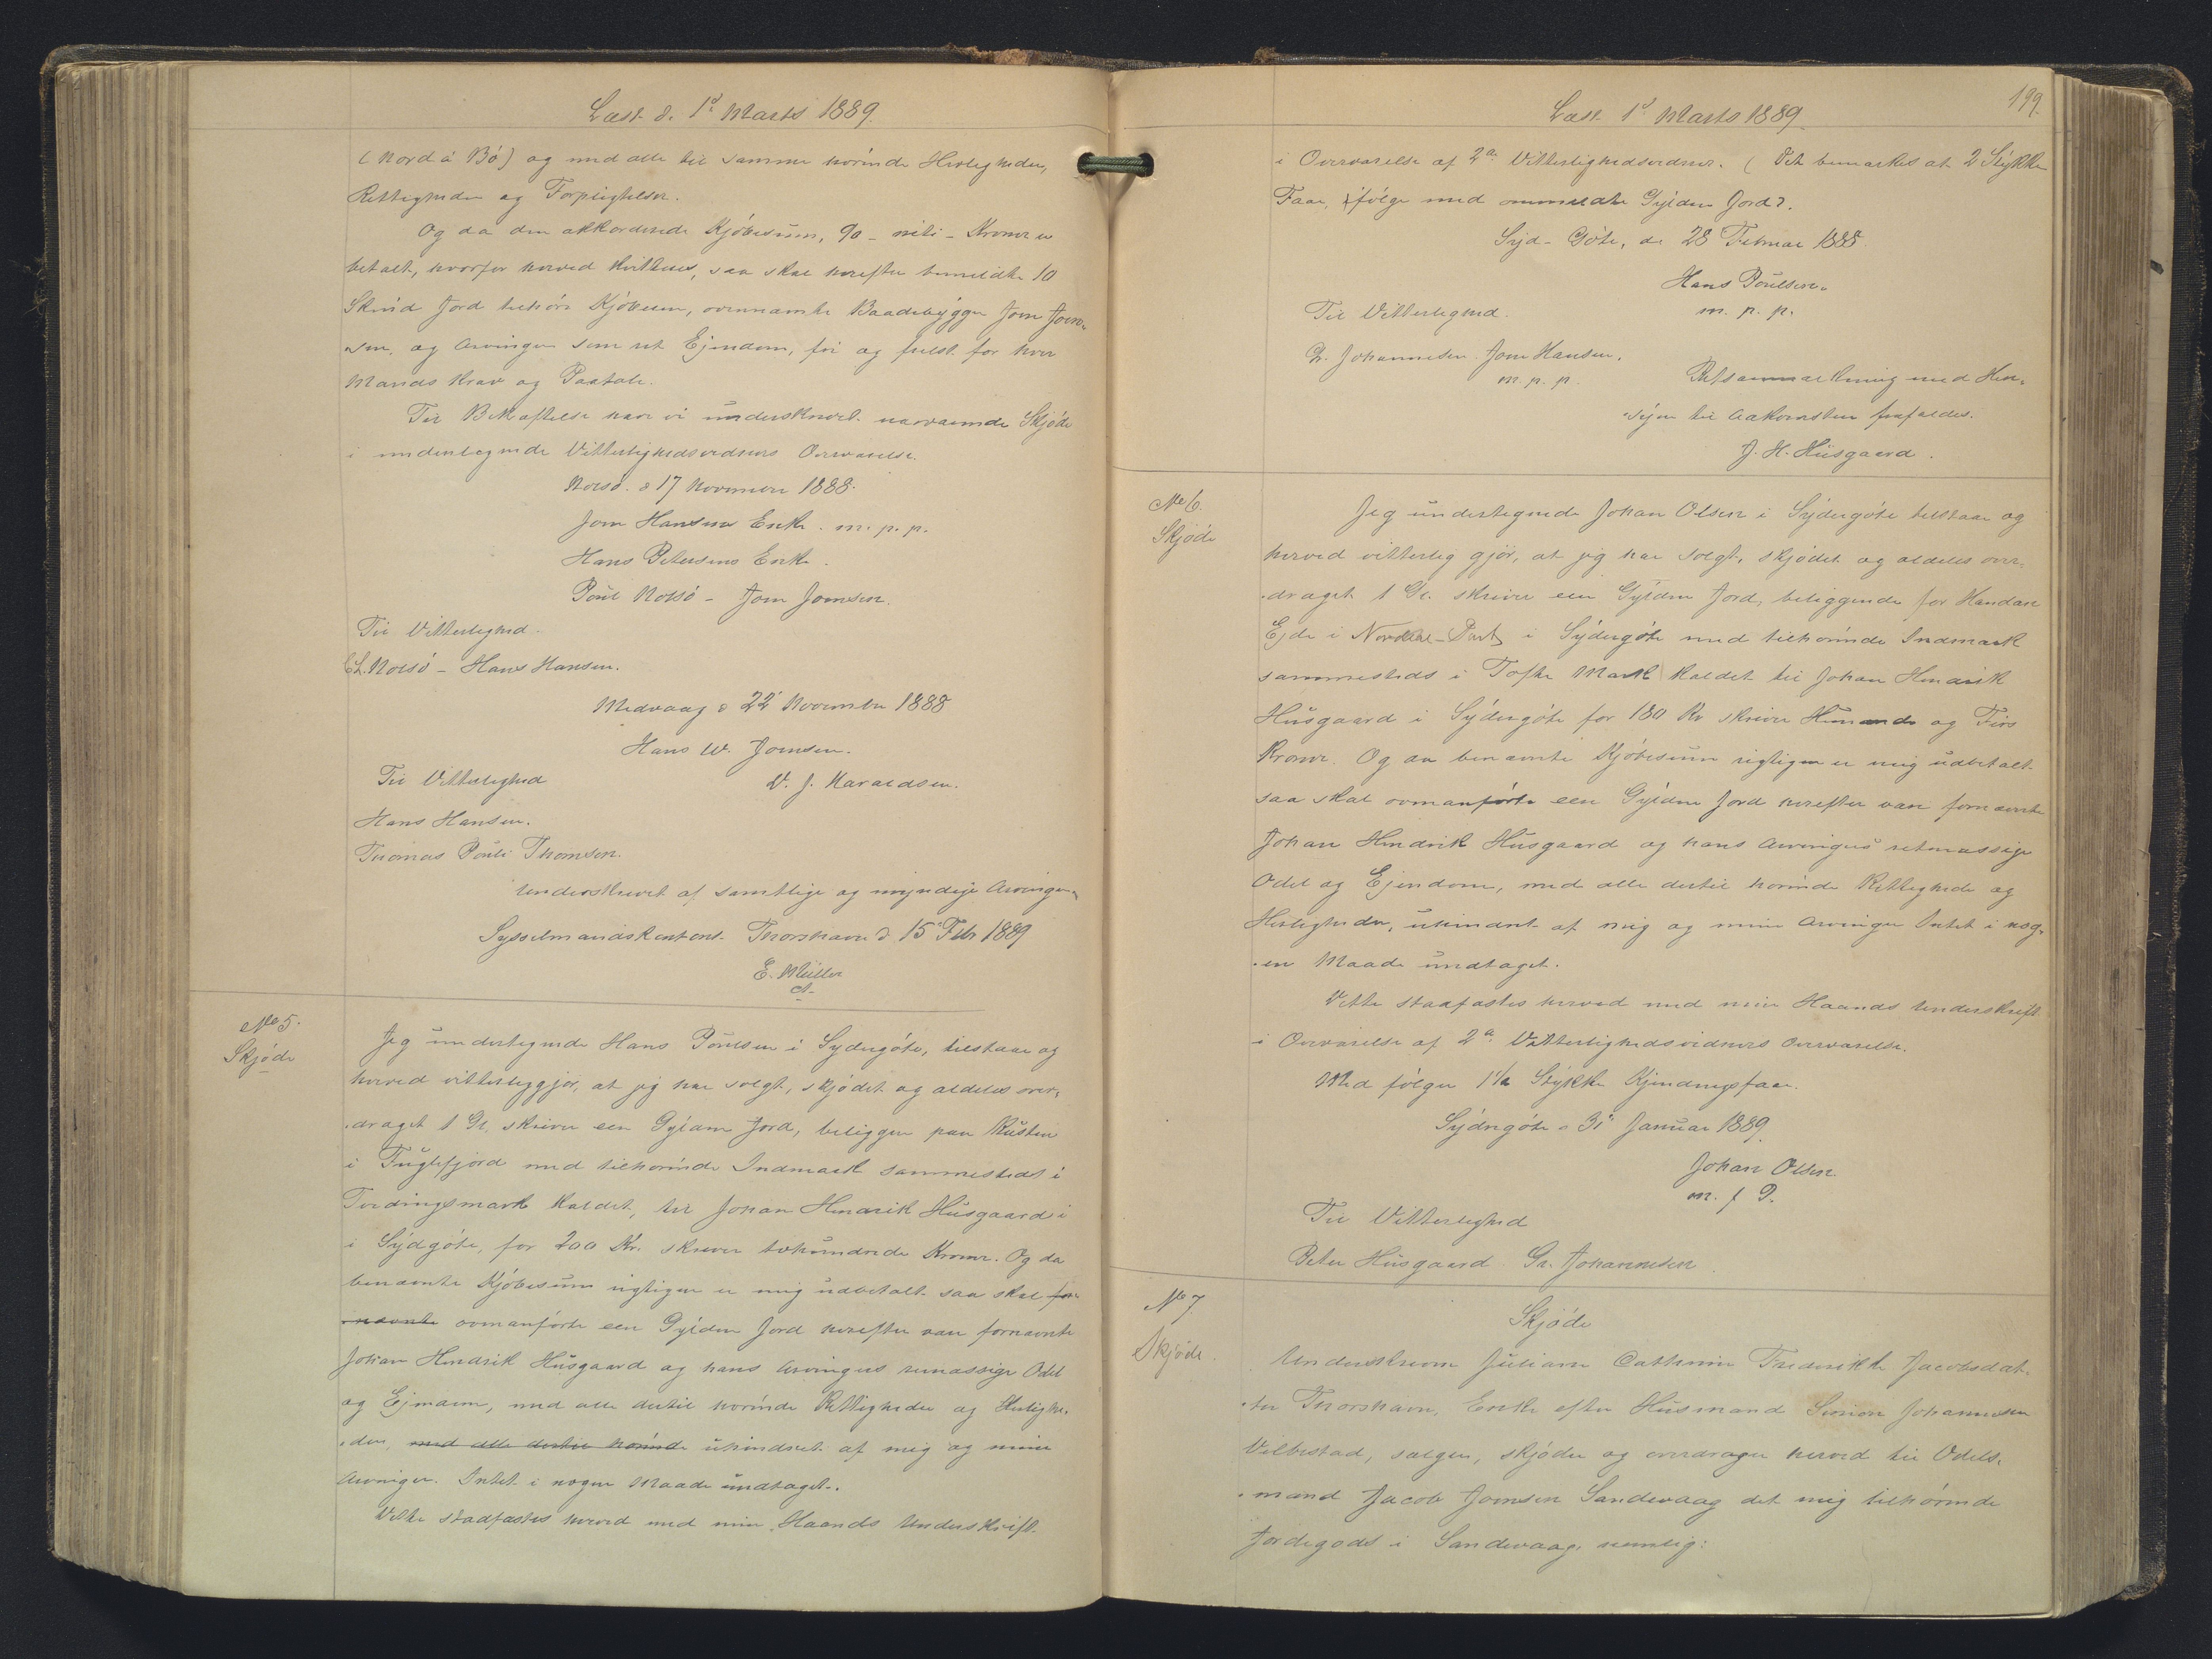 Læst d. 1ᵈ Marts 1889.
(Nord á Bö) og med alle til samme hörende Herligheder,
Rettigheder og Forpligtelser.
Og da den akkorderede Kjöbesum, 90 - niti - Kroner er
betalt, hvorfor herved kvitteres, saa skal herefter bemeldte 10
Skind Jord tilhöre Kjöberen, ovennævnte Baadebygger Joen Joen-
sen, og Arvinger som ret Ejendom, fri og frelst for hver
Mands Krav og Paatale.
Til Bekræftelse have vi underskrevet nærværende Skjöde
i undertegnede Vitterlighedsvidners Overværelse.
Nolsö. d 17 November 1888.
Joen Hansens Enke. m. p. p.
Hans Petersens Enke.
Poul Nolsö - Joen Joensen.
Til Vitterlighed.
Nolsö - Hans Hansen.
Midvaag d 22 November 1888
Hans W. Joensen.
Til Vitterlighed
D. J. Haraldsen.
Hans Hansen.
Thomas Pouli Thomsen.
Underskrevet af samtlige og myndige Arvinger
Sysselmandskontoret Thorshavn d 15 Febr 1889
E. Müller
cst.
No 5.
Skjöde
Jeg undertegnede Hans Poulsen i Sydregöte, tilstaar og
herved vitterliggjör, at jeg har solgt, skjödet og aldeles over-
draget 1 Gl. skriver een Gylden Jord, beliggen paa Kusten
i Fuglefjord med tilhörende Indmark sammesteds i
Kaldet, til Johan Hendrik Husgaard i
i Sydgöte, for 200 Kr. skriver tohundrede Kroner. Og da
benævnte Kjöbesum rigtigen er mig udbetalt saa skal for-
nævnte ovenanförte een Gylden Jord herefter være fornævnte
Johan Hendrik Husgaard og hans Arvingers retmæssige Odel
og Ejendom, med alle dertil hörende Rettigheder og Herlighe-
der, med alle dertil hörende uhindret af mig og mine
Arvinger. Intet i nogen Maade undtaget.
Dette stadfæstes herved med min Haands Underskrift.
199.
Læst 1ᵈ Marts 1889.
i Overværelse af 2ᵈᵉ Vitterlighedsvidner. (Det bemærkes at 2 Stykker
Faar, ifölge med ommeldte Gylden Jord).
Syd-Göte, de 28 Februar 1888.
Hans Poulsen.
m. p. p.
Til Vitterlighed.
Johannesen. Joen Hansen.
m. p. p.
Retsanmærkning med Hen-
syn til Adkomsten frafaldes.
J. H. Husgaard.
No 6.
Skjöde
Jeg undertegnede Johan Olsen i Sydregöte tilstaar og
herved vitterlig gjör, at jeg har solgt, skjödet og aldeles over-
draget 1 Gl. skriver een Gylden Jord, beliggende for Handan
Ejde i Part i Sydregöte med tilhörende Indmark
sammesteds i Tofte Mark kaldet til Johan Hendrik
Husgaard i Sydregöte for 180 Kr skriver Hundrede og Firs
Kroner. Og da benævnte Kjöbesum rigtigen er mig udbetalt
saa skal ovenanförte een Gylden Jord herefter være fornævnte
Johan Hendrik Husgaard og hans Arvingers retmæssige
Odel og Ejendom, med alle dertil hörende Rettigheder og
Herligheder, uhindret af mig og mine Arvinger Intet i nog-
en Maade undtaget.
Dette stadfæstes herved med min Haands Underskrift
i Overværelse af 2ᵈᵉ Vitterlighedsvidners Overværelse.
Med fölger 1½ Stykke Kjendingsfaar.
Sydregöte d 31 Januar 1889.
Johan Olsen
m. f P.
Til Vitterlighed
Peter Husgaard. Johannesen.
No 7.
Skjöde.
Skjöde
Underskreven Juliane Cathrine Frederikke Jacobsdat-
ter Thorshavn, Enke efter Husmand Simon Johannesen
Velbestad, sælger, skjöder og overdrager herved til Odels-
mand Jacob Joensen Sandevaag det mig tilhörende
Jordegods i Sandevaag, nemlig: